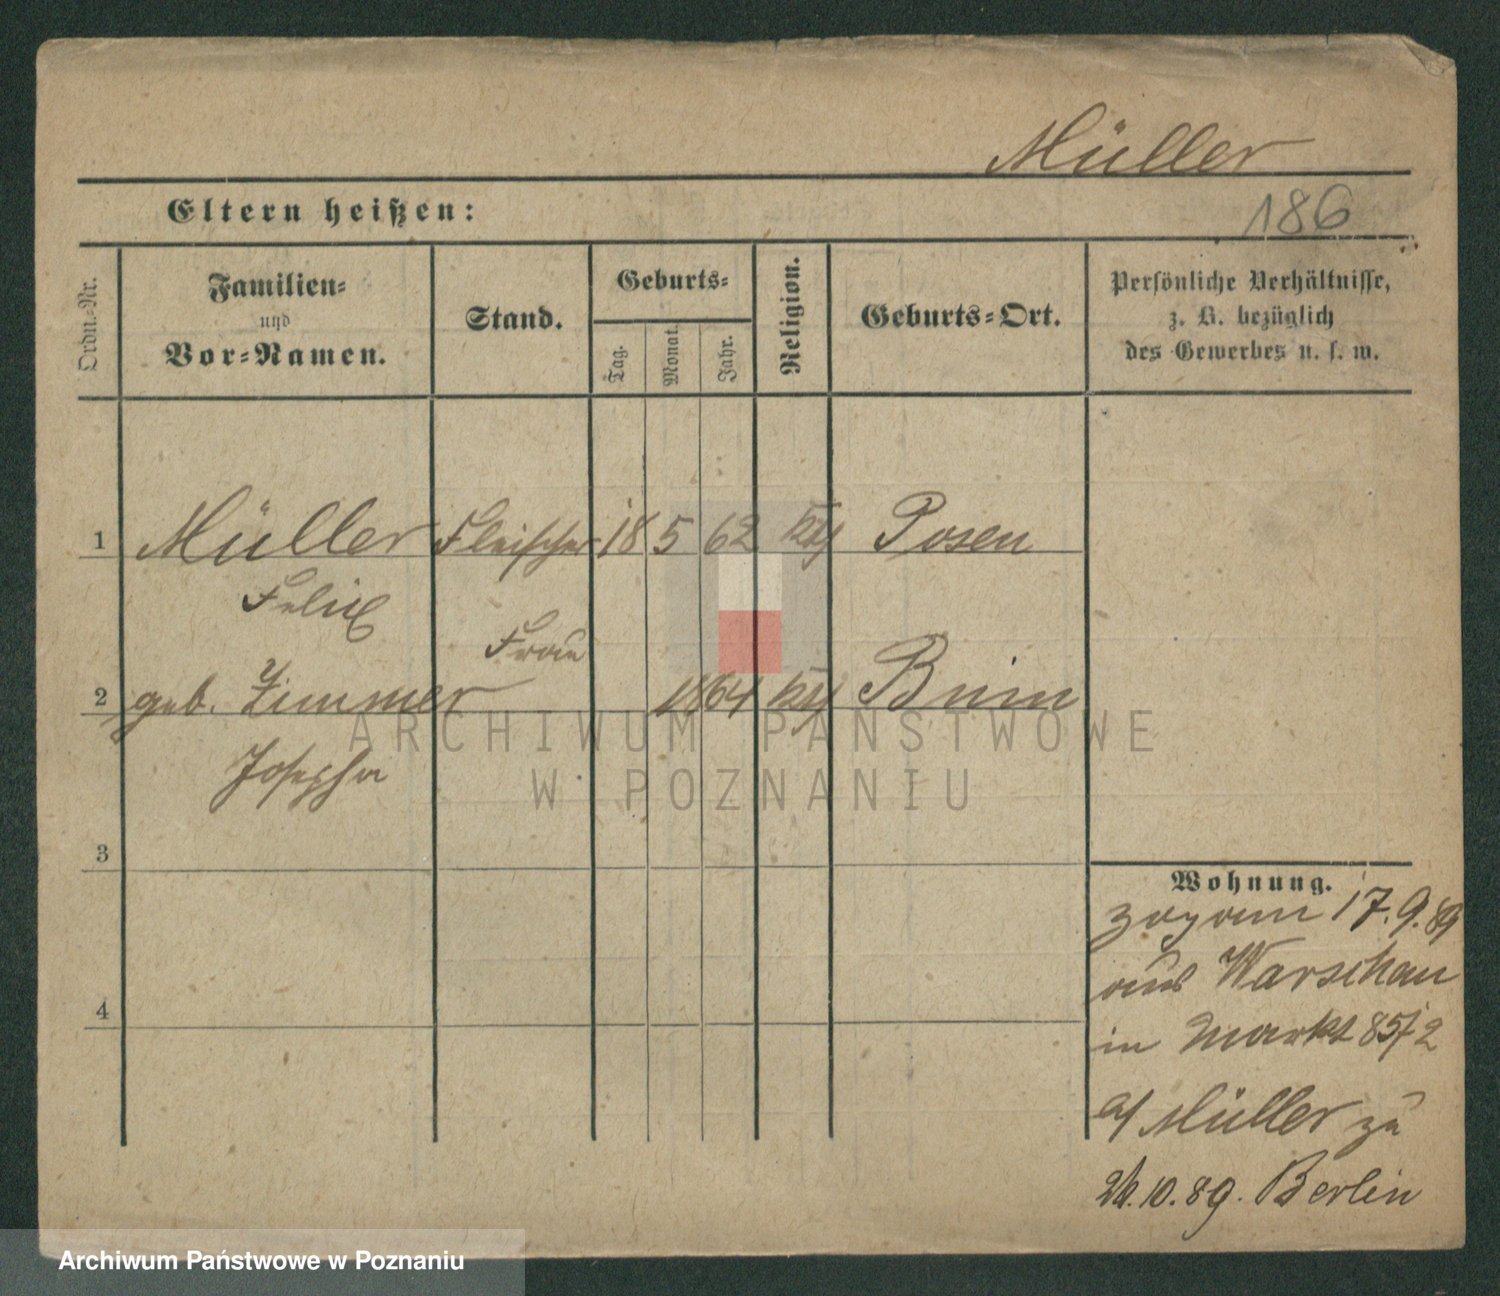 Müller
Eltern heißen:
186
Ordn.-Nr.
Familien-
und
Vor-Namen.
Stand.
Geburts-
Tag.
Monat.
Jahr.
Religion.
Geburts-Ort.
Persönliche Verhältnisse,
z. B. bezüglich
des Gewerbes u. s. w.
1 Müller Fleischer 18 5 62 Posen
Felix
Frau
2 geb. Zimmer 1864 Bnin
Josepha
ARCHIWUM PAŃSTWOWE
W POZNANIU
3
Wohnung.
zog am 17.9.89
aus Warschau
4
in Markt 85/2
Müller zu
.10.89. Berlin
Archiwum Państwowe w Poznaniu